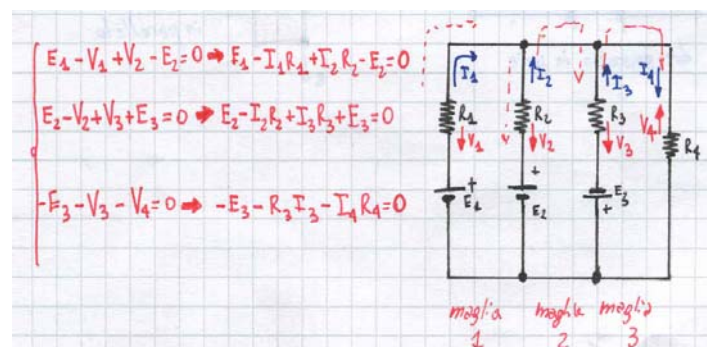 E1-V1+V2-E2=0 ➡ E1-I1R1+I2R2-E2=0
E2-V2+V3+E3=0 ➡ E2-I2R2+I3R3+E3=0
-E3-V3-V4=0 ➡ -E3-R3I3-I4R4=0
I1 I2 I3 I4
R1 R2 R3 R4
V1 V2 V3 V4
+ + +
E1 E2 E3
maglia maglia maglia
1 2 3